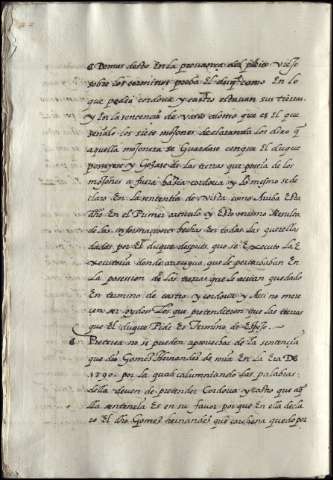 Demas desto En la provança del pleito viejo
sobre los terminos prueba El duque como En lo
que pedia cordova y castro estavan sus tierras
y En la sentencia de vista como que es El que
señalo los siete mojones declarando los dixo que
aquella mojonera se Guardase conque El duque
poseyese y Gozase de las tierras que poseia de los
mojones a fuera hazia cordova y lo mesmo se de
claro En la sentencia de vista como arriba Esta
dho En el Primer articulo y Esto mismo Resulta
de las informaciones hechas En todas las querellas
dadas por El duque despues que se Executo la E
xecutoria donde averiguo que le perturbavan En
la posesion de las tierras que le avian quedado
En termino de castro y cordova y Assi no mere
cen ser oydos Los que pretendieren que las tierras
que El duque Pide Es Termino de Espejo.
Pretenso no se pueden aprovechar de la sentencia
que dio Gomez Hernandez de mila En la Era DE
1290. por la qual calumniando las palabras
della deven de pretender Cordova y castro que aque
lla sentencia Es en su favor por que En ella decla
ro El dho Gomez hernandez que carchena quedo por